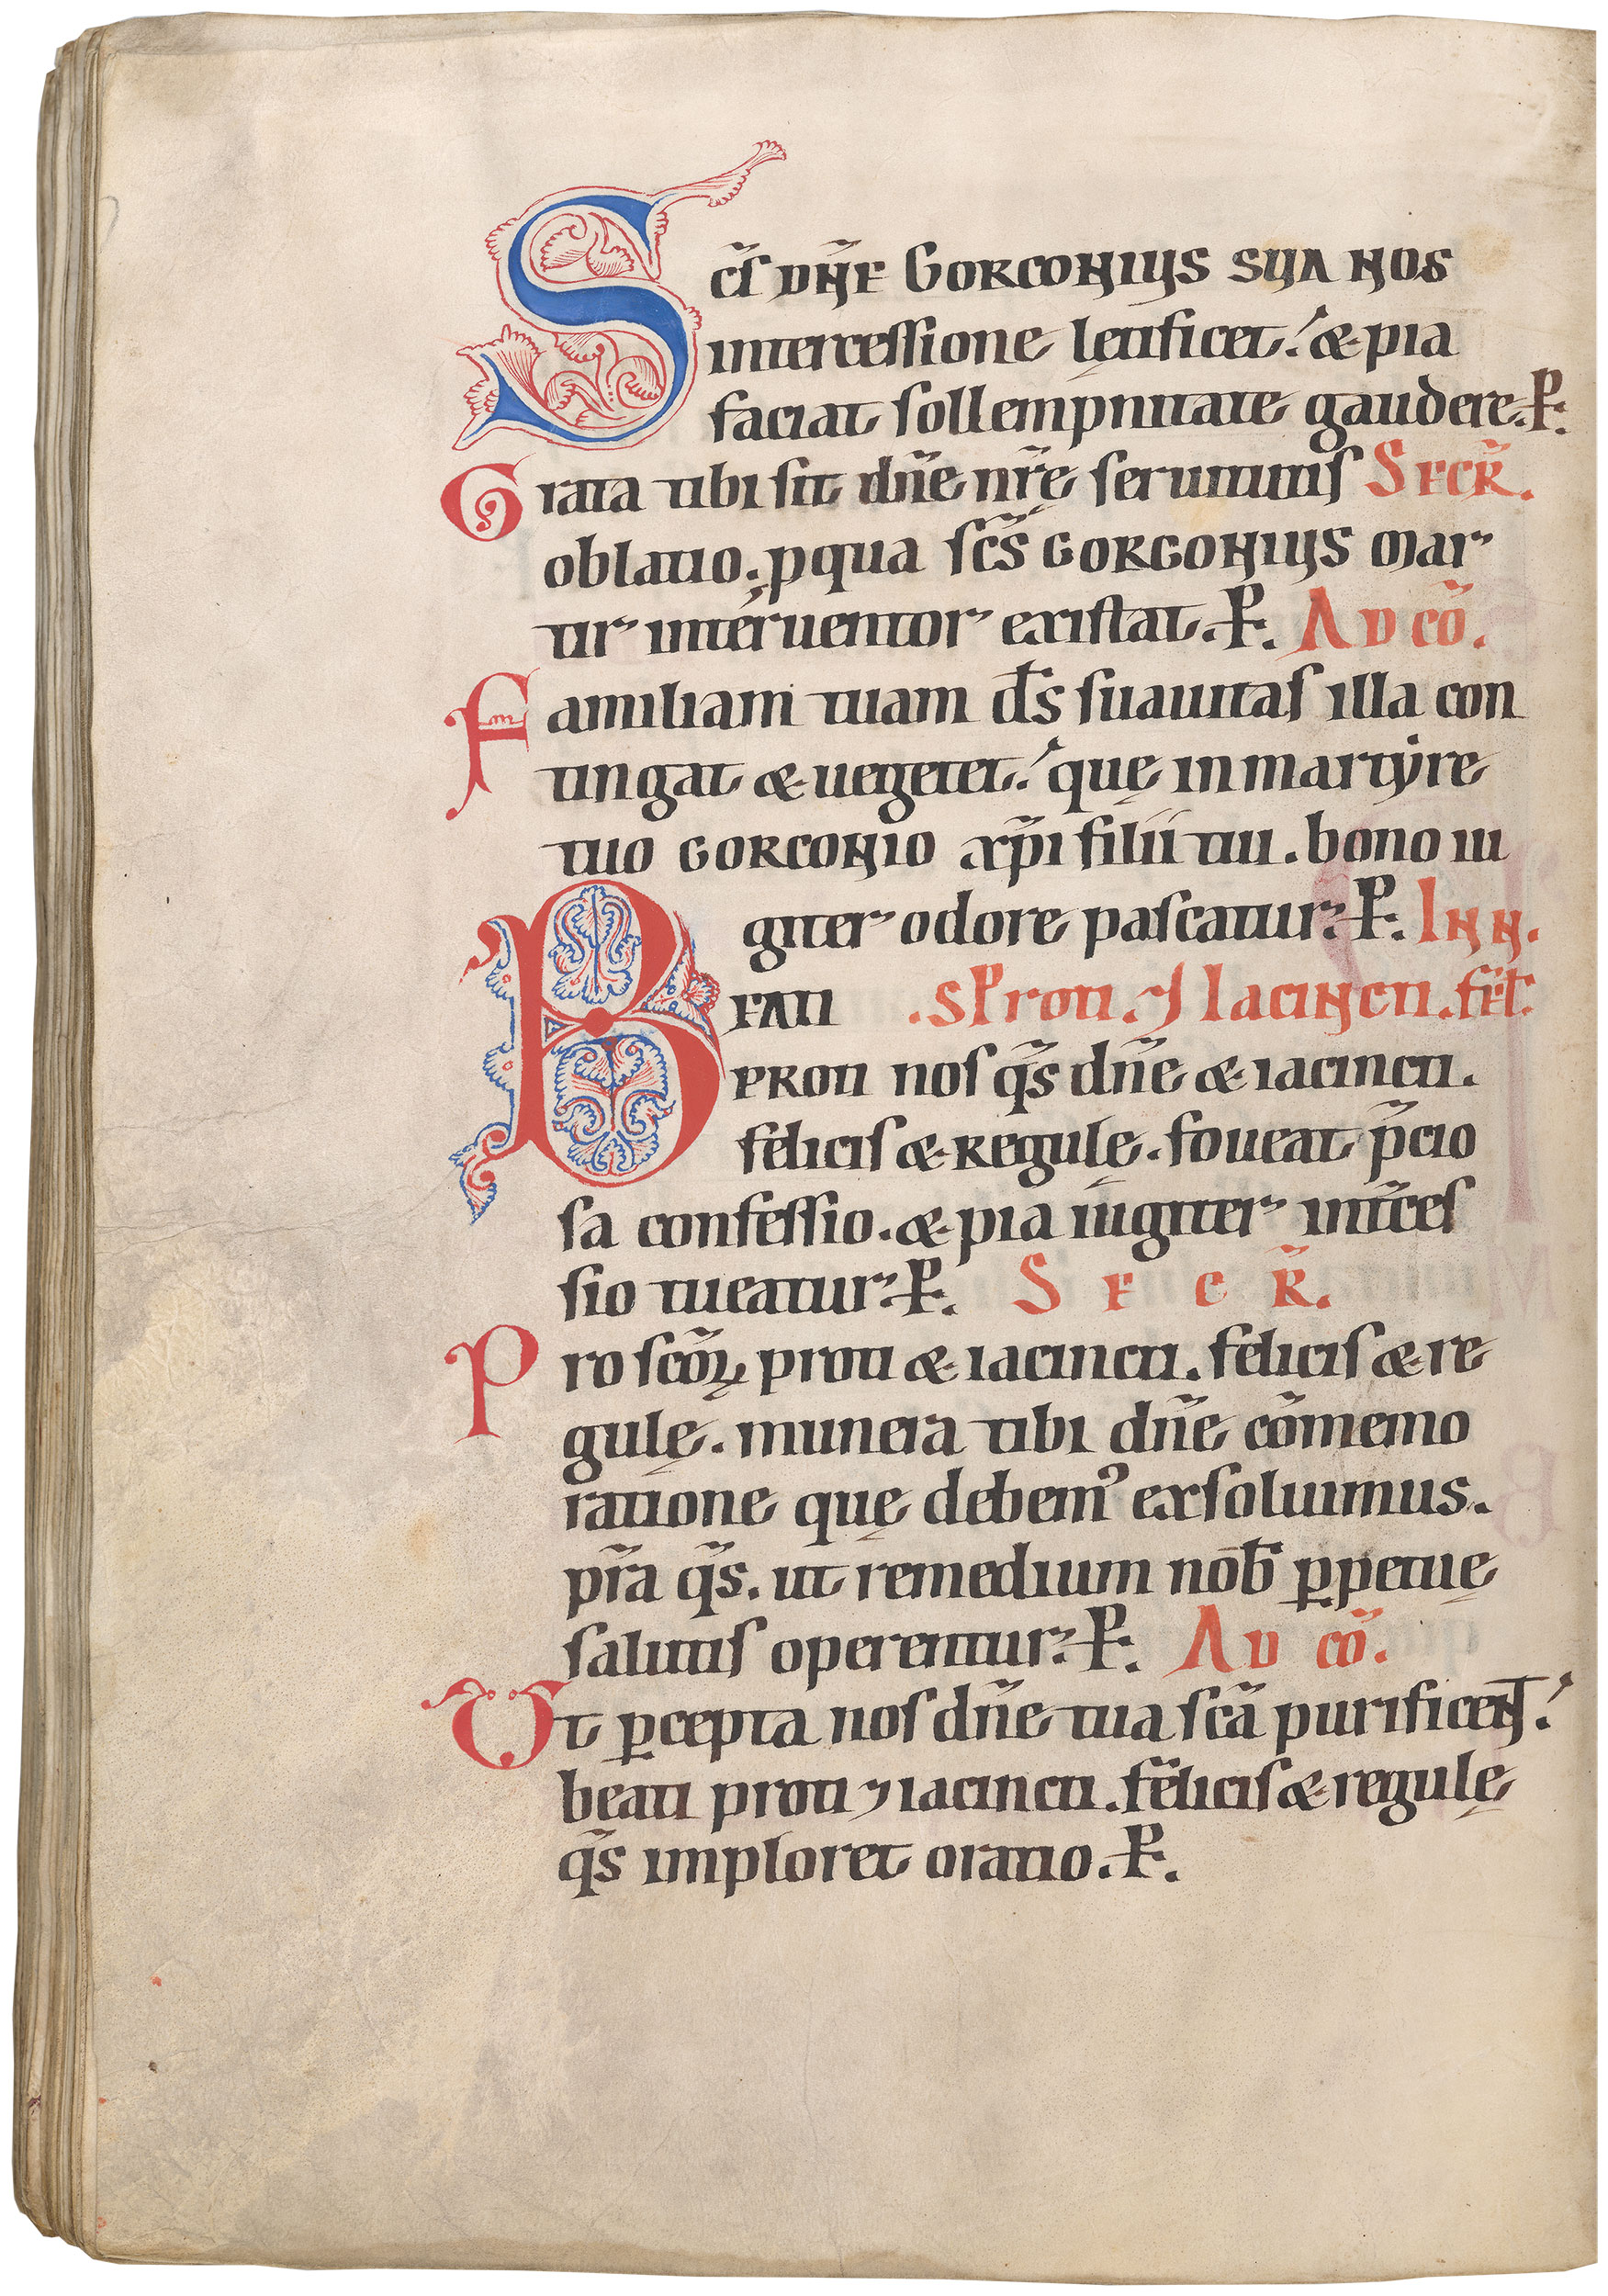 Sc̃s dñe Gorgonius sua nos
intercessione lętificet. & pia
faciat sollempnitate gaudere. P.
Grata tibi sit dñe nr̃ę seruitutis SECR̃.
oblatio. p̱ qua sc̃s GORGONIUS mar
tir interuentor existat. P. AD CÕ.
Familiam tuam d̃s suauitas illa con
tingat & uegetet. quę in martẏre
tuo GORGONIO xp̃i filii tui. bono iu
giter odore pascatur. P. INN.
BEATI .S Proti ⁊ Iacincti. fel̃.
PROTI nos q̃s dñe & iacincti.
felicis & Regulę. foueat p̃cio
sa confessio. & pia iugiter int̃ces
sio tueatur. P. S E C R̃.
Pro sc̃oꝝ proti & iacincti. felicis & re
gulę. munera tibi dñe cõmemo
ratione quę debemꝰ exsoluimus.
p̃ra q̃s. ut remedium nob̃ ꝑpetuę
salutis operentur. P. AD CÕ.
Vt ꝑcepta nos dñe tua sc̃a purificent̃.
beati proti ⁊ iacincti. felicis & regulę
q̃s imploret oratio. P.